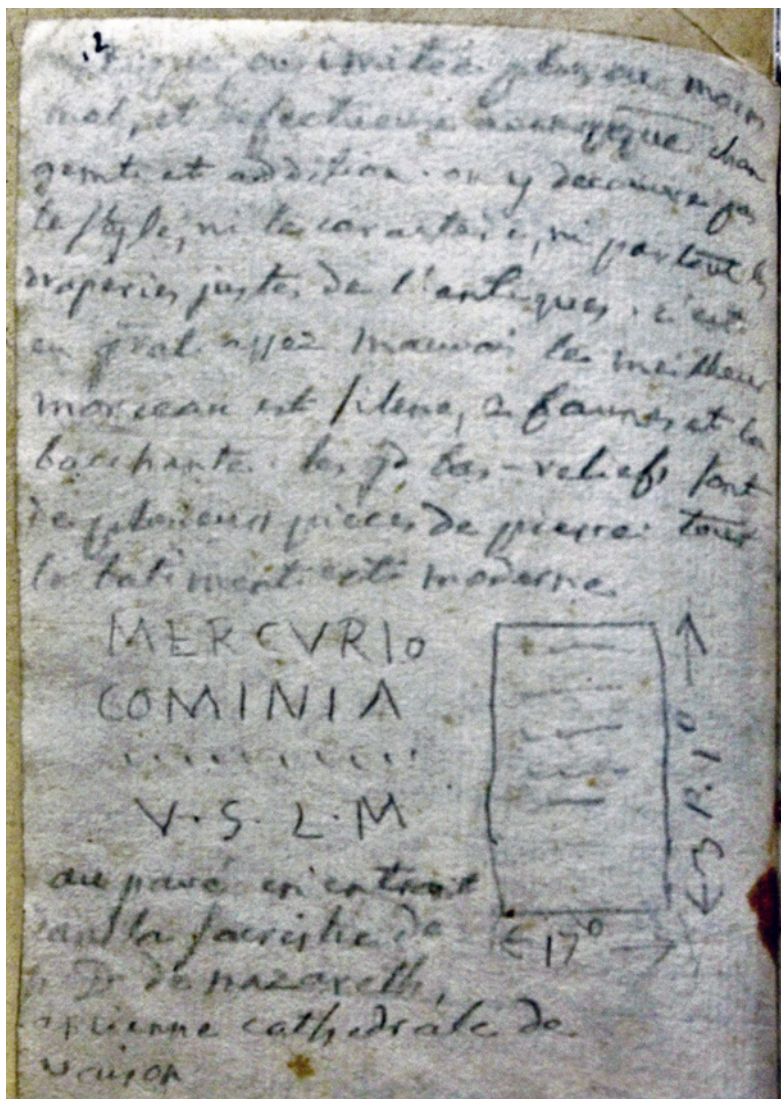 12
ou imitée plus ou moin
mal, et defectueux quelque chan
gemts et addition. on y decouvre pas
le style, ni le caractere, ni partout les
draperies justes de l'antiques. c'est
en gral assez mauvais le meilleur
morceau est silene, 2 faunes et la
bacchante. les gds bas-reliefs sont
de plusieurs pieces de pierre. tout
le batiment est moderne
MERCVRIO
COMINIA
. . . . . . . . .
V·S·L·M
3 P. 1º
17º
au pavé en entrant
dans la sacristie de
n. D. de nazareth,
ancienne cathedrale de
vaison